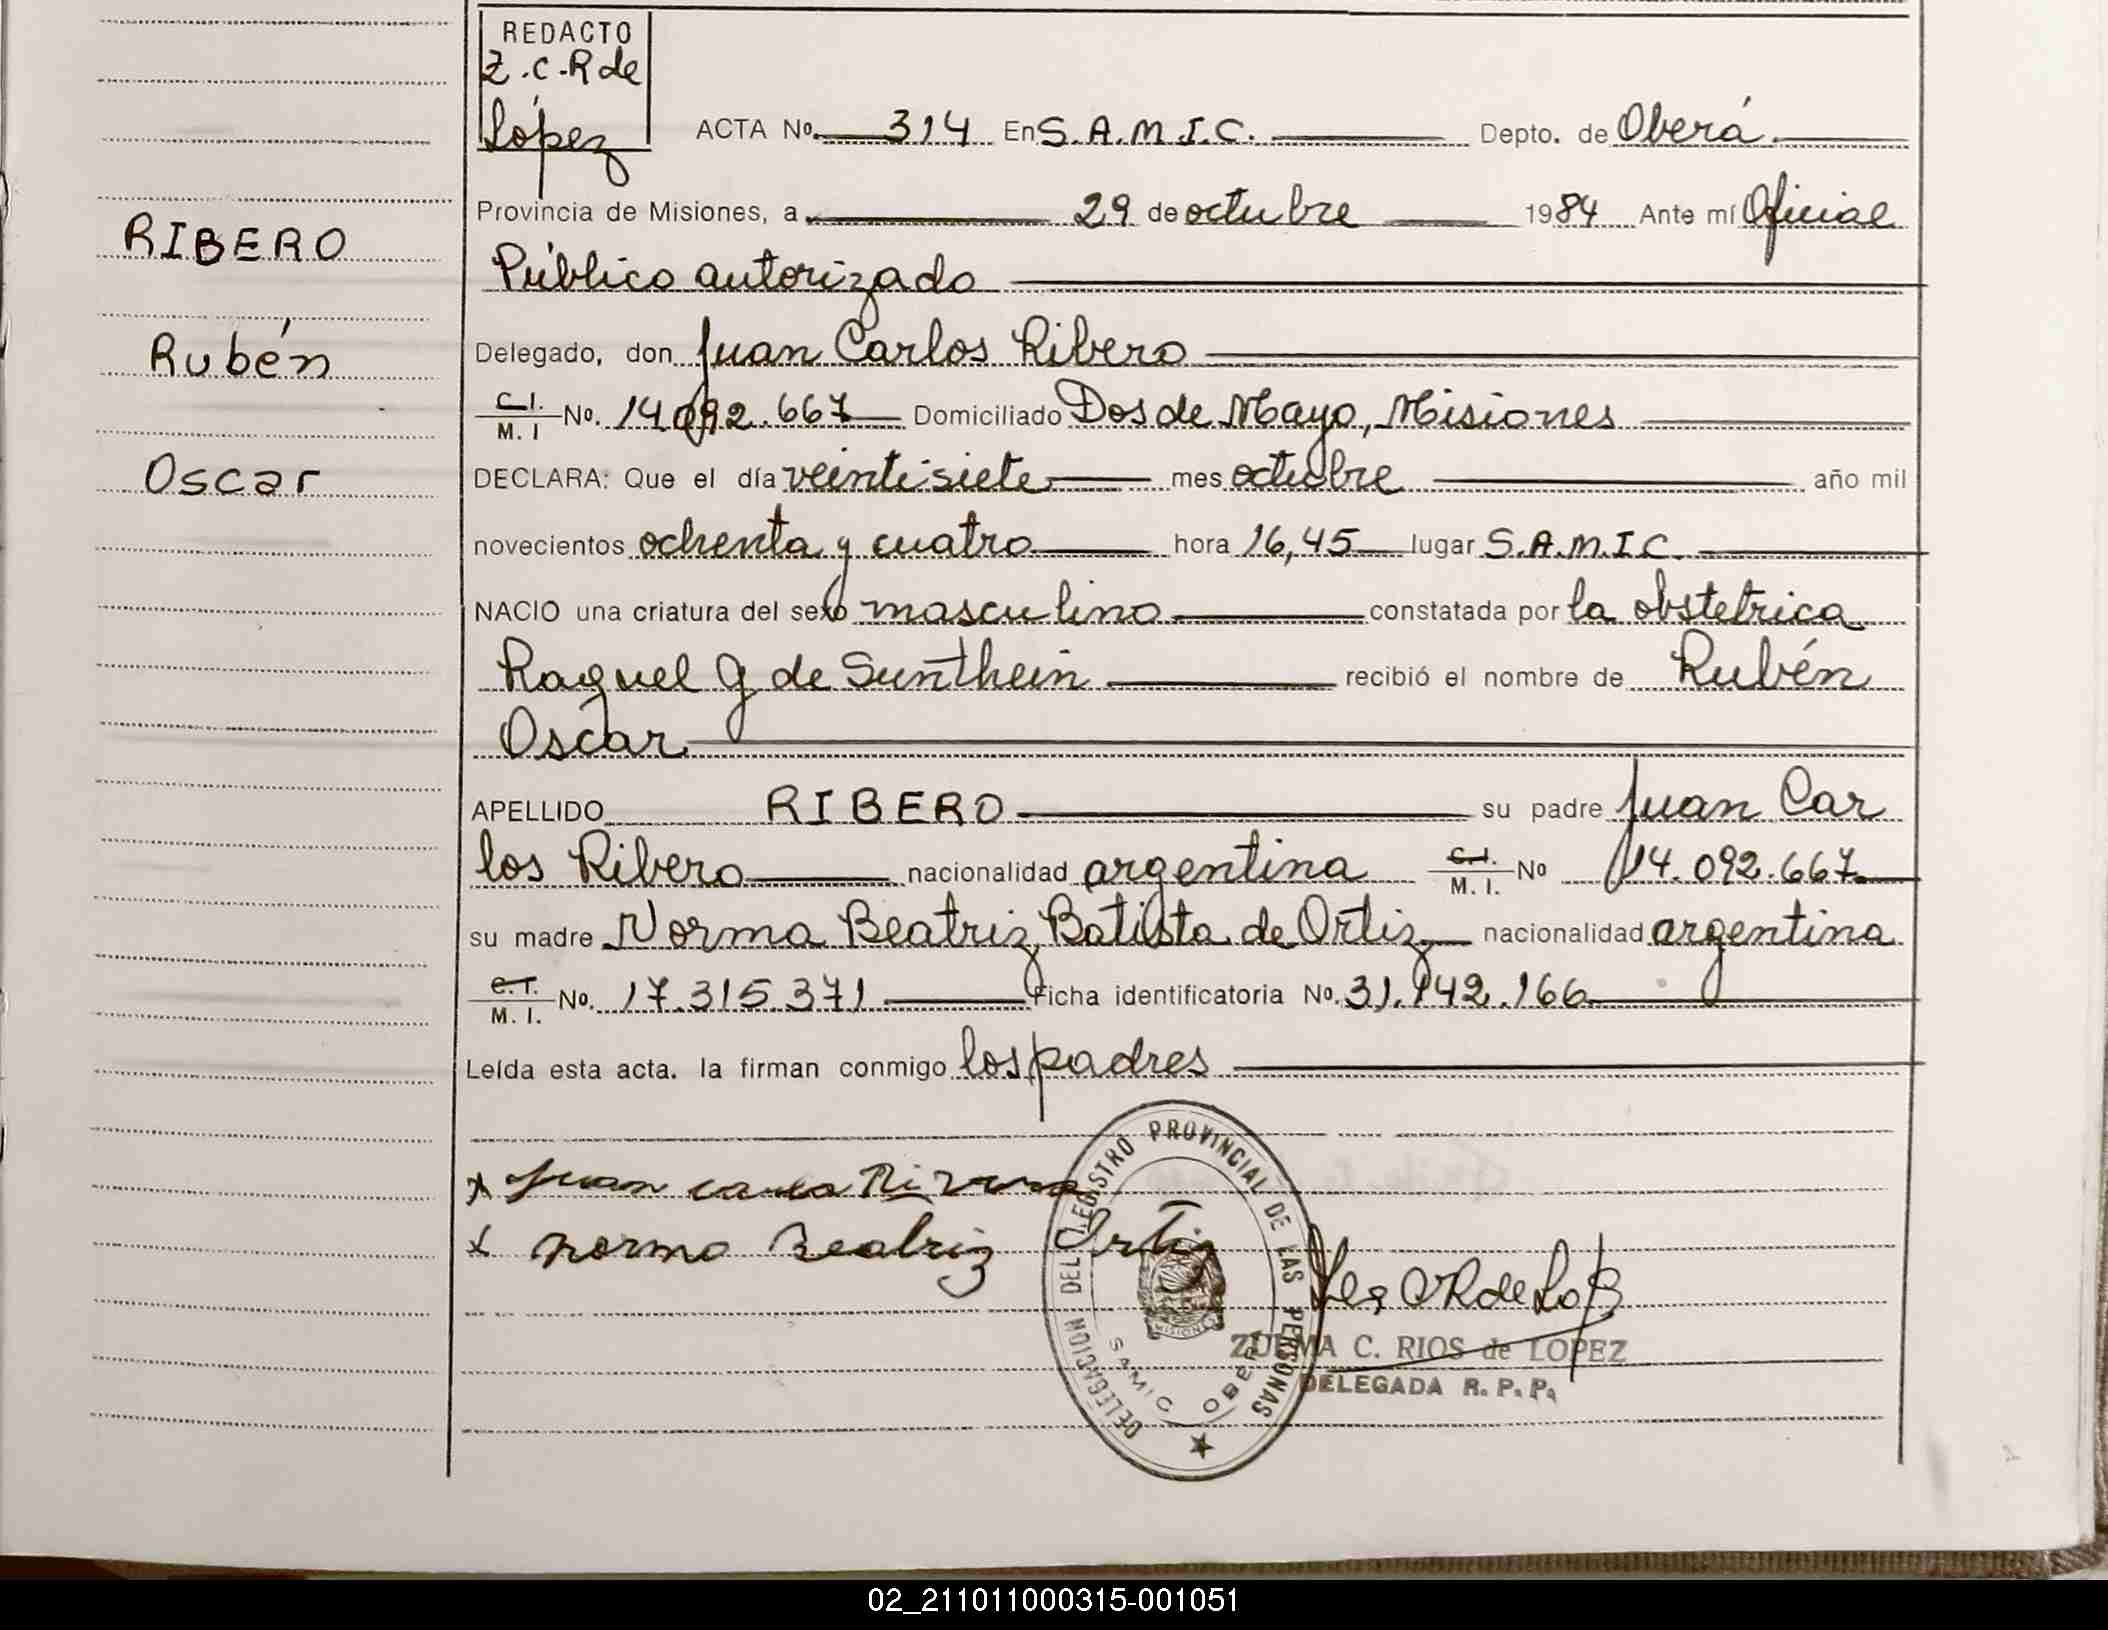 REDACTO
Z.C.R de
López
ACTA No. 314 En S.A.M.I.C. Depto. de Oberá
Provincia de Misiones, a 29 de octubre 1984 Ante mí Oficial
Público autorizado
RIBERO
Rubén
Oscar
Delegado, don Juan Carlos Ribero
C.I. M.I No. 14.092.667 Domiciliado Dos de Mayo, Misiones
DECLARA: Que el día veintisiete mes octubre año mil
novecientos ochenta y cuatro hora 16,45 lugar S.A.M.I.C.
NACIO una criatura del sexo masculino constatada por la obstetrica
Raquel G de Sunthein recibió el nombre de Rubén
Oscar
APELLIDO RIBERO su padre Juan Car
los Ribero nacionalidad argentina C.I. M.I. No 14.092.667
su madre Norma Beatriz Batista de Ortiz nacionalidad argentina
C.I. M.I. No. 17.315.371 Ficha identificatoria No. 31.142.166
Leída esta acta. la firman conmigo los padres
x Juan Rivero
x Norma Beatriz Ortiz
DELEGACION DEL REGISTRO PROVINCIAL DE LAS PERSONAS
MISIONES
SAMIC OBERA
ZULMA C. RIOS de LOPEZ
DELEGADA R. P. P.
02_211011000315-001051